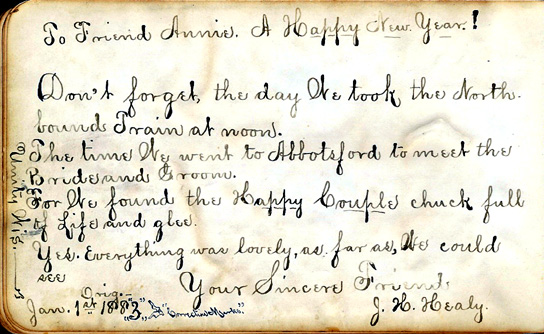 To Friend Annie. A Happy New Year!
Don't forget, the day We took the North-
bound Train at noon.
The time We went to Abbotsford to meet the
Bride and Groom.
For We found the Happy Couple chuck full
of Life and glee.
Yes. Everything was lovely, as far as, We could
see
Your Sincere Friend,
Orig.
Jan. 1st 1883,
J. H. Healy.
Unity Wis.